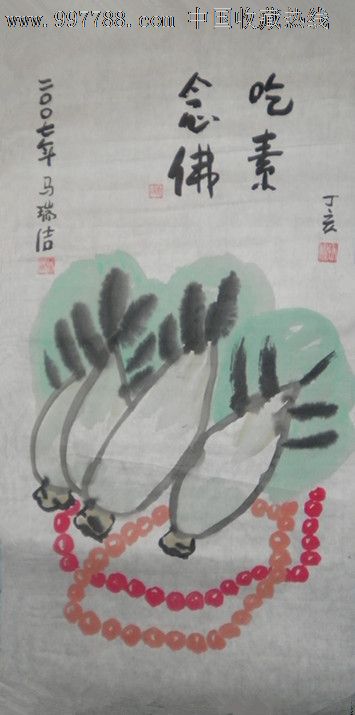 www.997788.com 中国收藏热线
吃素
念佛
丁亥
二〇〇七年 马瑞洁